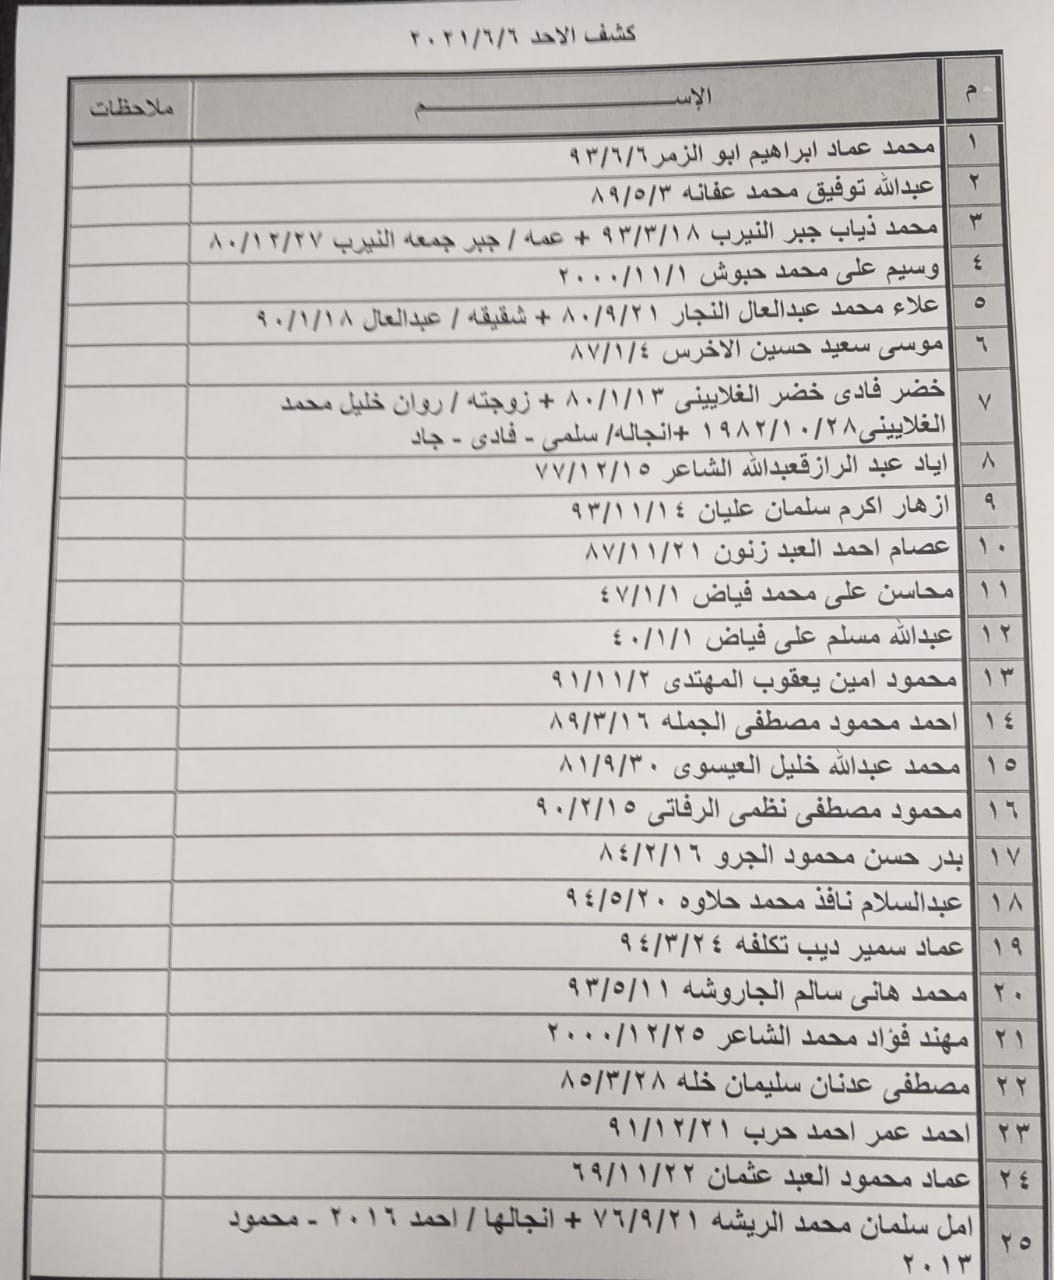 كشف الاحد ٢٠٢١/٦/٦
م الإســـــــم ملاحظات
١ محمد عماد ابراهيم ابو الزمر ٩٣/٦/٦
٢ عبدالله توفيق محمد عفانه ٨٩/٥/٣
٣ محمد ذياب جبر النيرب ٩٣/٣/١٨ + عمه / جبر جمعه النيرب ٨٠/١٢/٢٧
٤ وسيم على محمد حبوش ٢٠٠٠/١١/١
٥ علاء محمد عبدالعال النجار ٨٠/٩/٢١ + شقيقه / عبدالعال ٩٠/١/١٨
٦ موسى سعيد حسين الاخرس ٨٧/١/٤
٧ خضر فادى خضر الغلايينى ٨٠/١/١٣ + زوجته / روان خليل محمد
الغلايينى١٩٨٢/١٠/٢٨ +انجاله/ سلمى - فادى - جاد
٨ اياد عبد الرازقعبدالله الشاعر ٧٧/١٢/١٥
٩ ازهار اكرم سلمان عليان ٩٣/١١/١٤
١٠ عصام احمد العبد زنون ٨٧/١١/٢١
١١ محاسن على محمد فياض ٤٧/١/١
١٢ عبدالله مسلم على فياض ٤٠/١/١
١٣ محمود امين يعقوب المهتدى ٩١/١١/٢
١٤ احمد محمود مصطفى الجمله ٨٩/٣/١٦
١٥ محمد عبدالله خليل العيسوى ٨١/٩/٣٠
١٦ محمود مصطفى نظمى الرفاتى ٩٠/٢/١٥
١٧ بدر حسن محمود الجرو ٨٤/٢/١٦
١٨ عبدالسلام نافذ محمد حلاوه ٩٤/٥/٢٠
١٩ عماد سمير ديب تكلفه ٩٤/٣/٢٤
٢٠ محمد هانى سالم الجاروشه ٩٣/٥/١١
٢١ مهند فؤاد محمد الشاعر ٢٠٠٠/١٢/٢٥
٢٢ مصطفى عدنان سليمان خله ٨٥/٣/٢٨
٢٣ احمد عمر احمد حرب ٩١/١٢/٢١
٢٤ عماد محمود العبد عثمان ٦٩/١١/٢٢
٢٥ امل سلمان محمد الريشه ٧٦/٩/٢١ + انجالها / احمد ٢٠١٦ - محمود
٢٠١٣